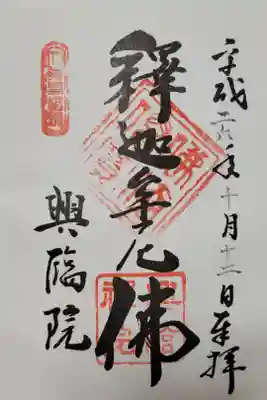 平成二六年十月十二日奉拝
釋迦牟尼佛
興臨院